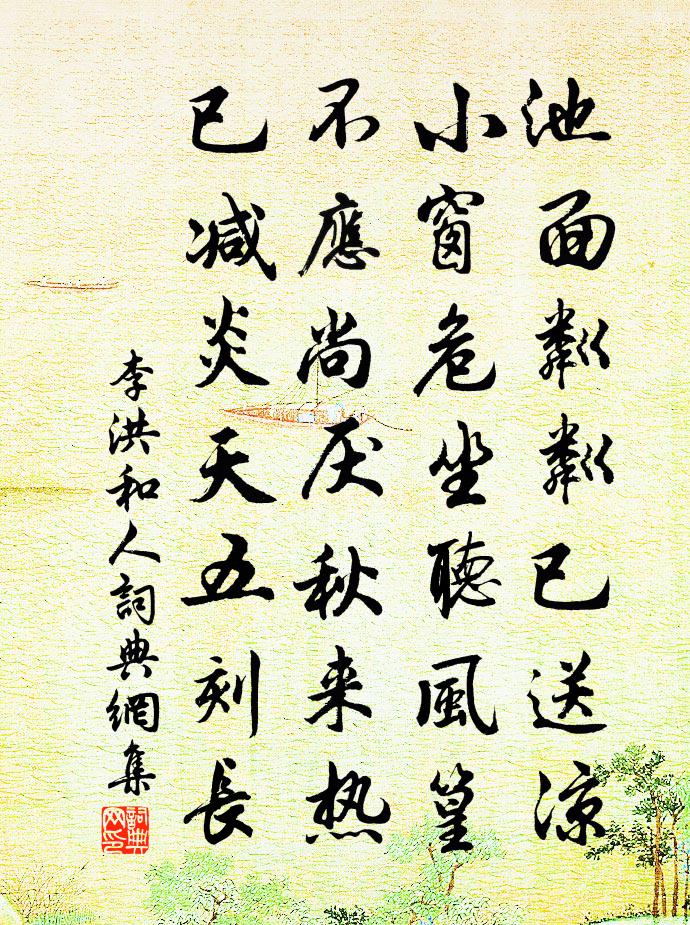 池面粼粼已送凉
小窗危坐聽風篁
不應尚厌秋来热
已减炎天五刻長
李洪和人詞典網集
詞典網印